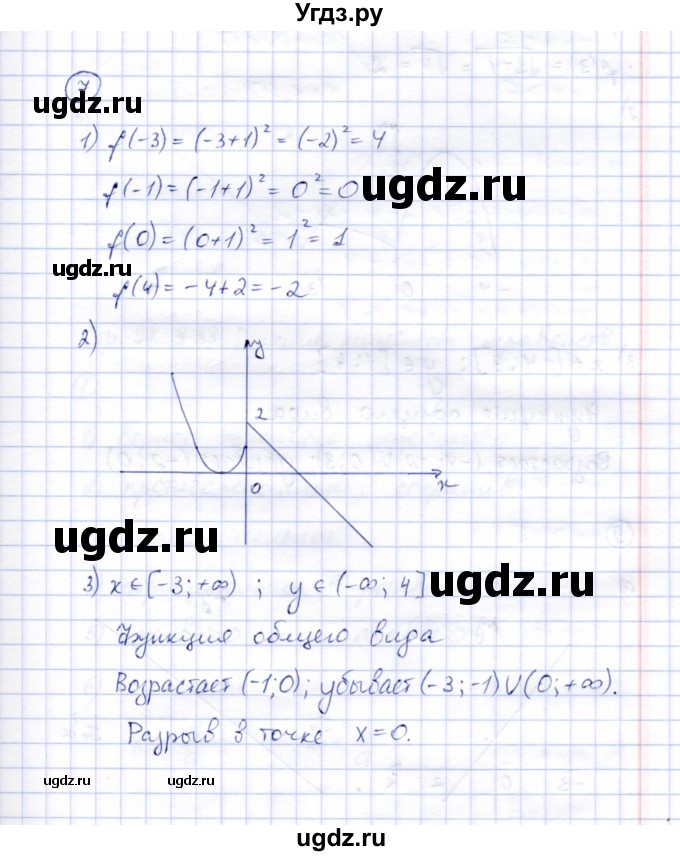 Угдз.ру
7
ugdz.ru
1) f(-3) = (-3+1)² = (-2)² = 4
f(-1) = (-1+1)² = 0² = 0
ugdz.ru
f(0) = (0+1)² = 1² = 1
ugdz.ru
f(4) = -4+2 = -2
2)
y
2
0
x
ugdz.ru
3) x ∈ [-3; +∞) ; y ∈ (-∞; 4]
ugdz.ru
Функция общего вида
Возрастает (-1; 0); убывает (-3; -1) ∪ (0; +∞).
Разрыв в точке x = 0.
ugdz.ru
ugdz.ru
ugdz.ru